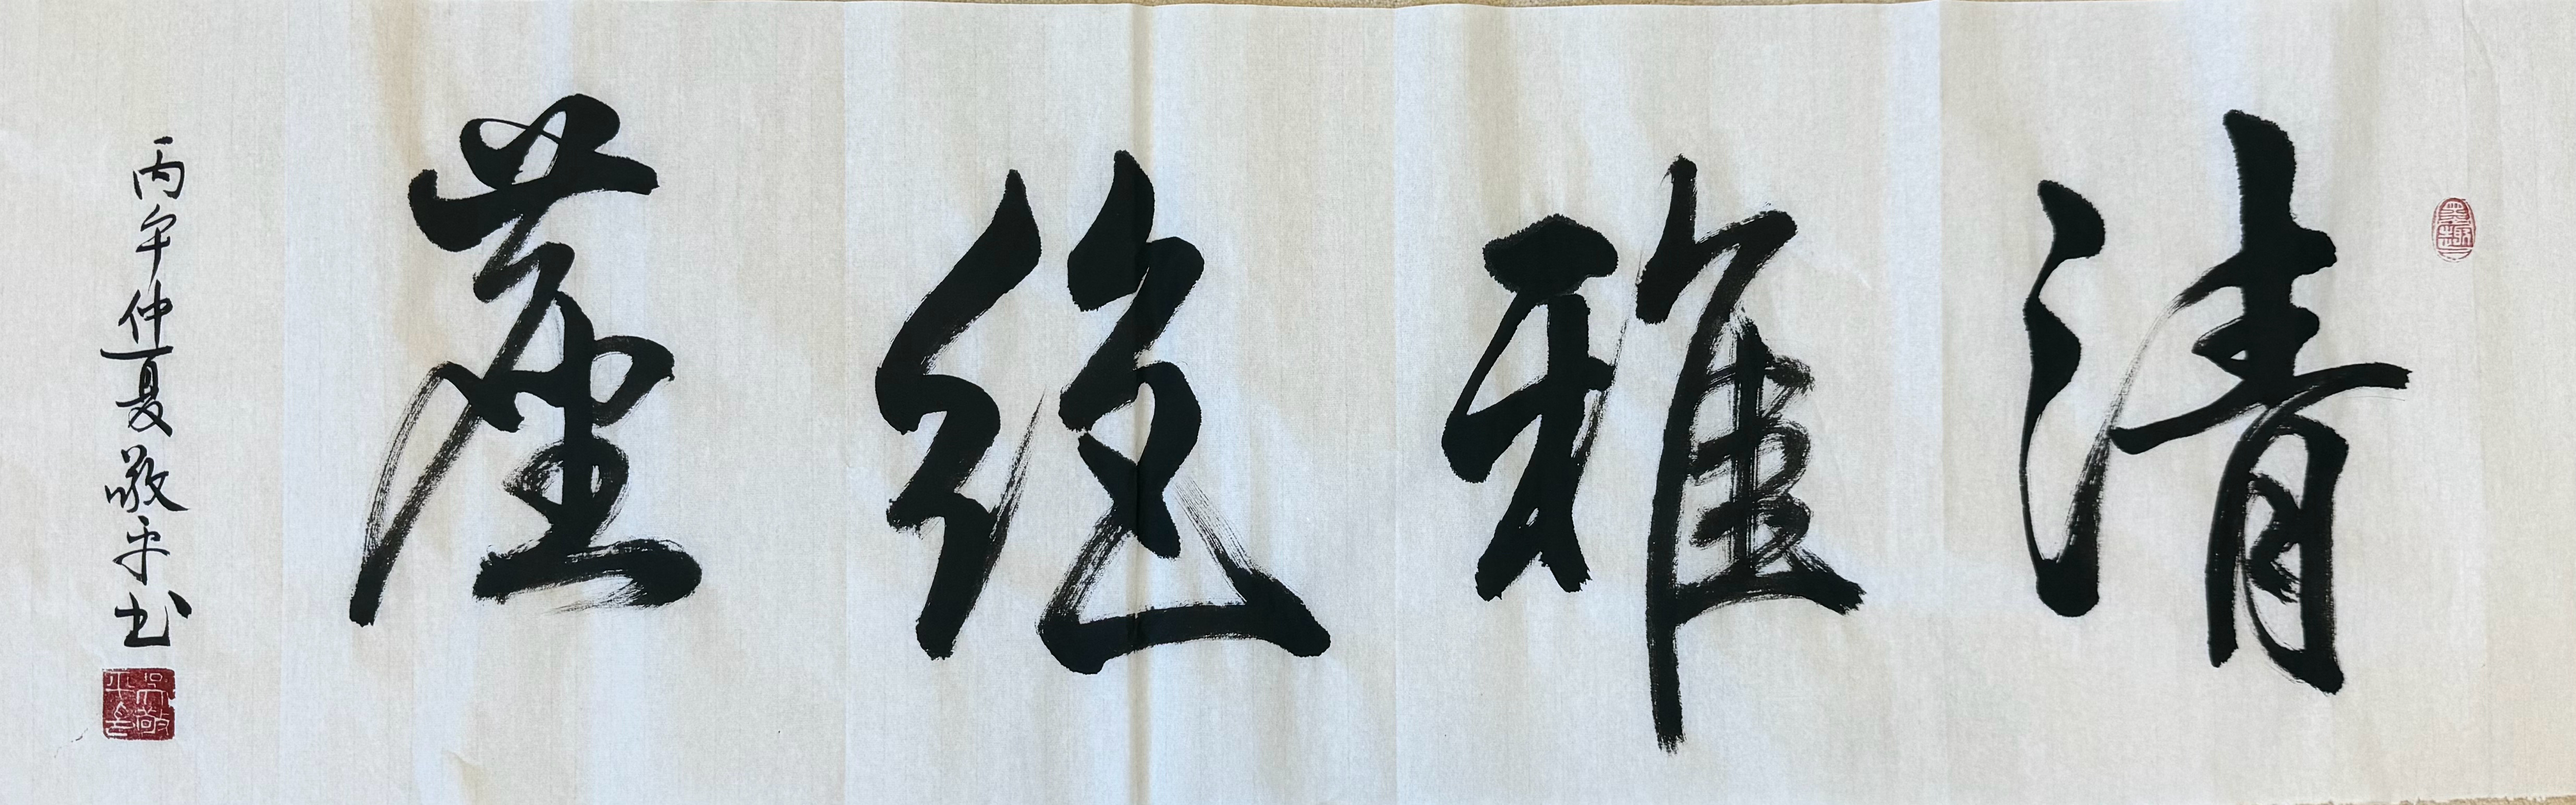 清雅绝尘
丙午仲夏敬平书